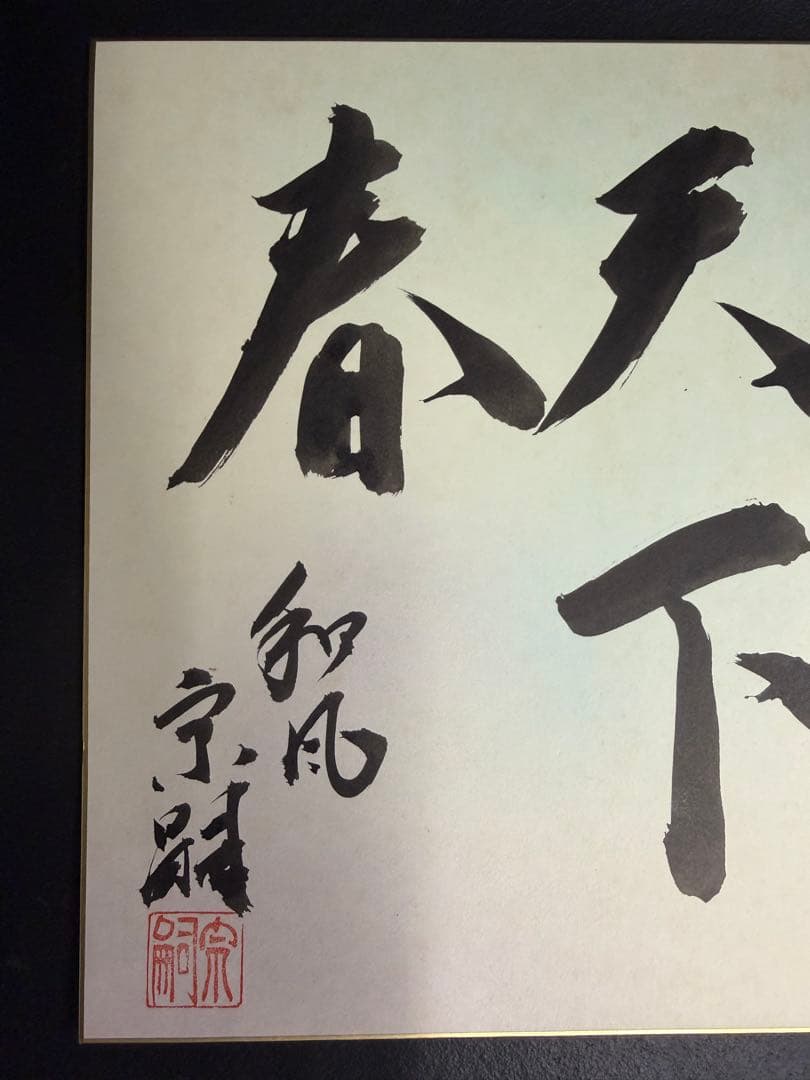 天下
春
和風
宗嗣
宗嗣